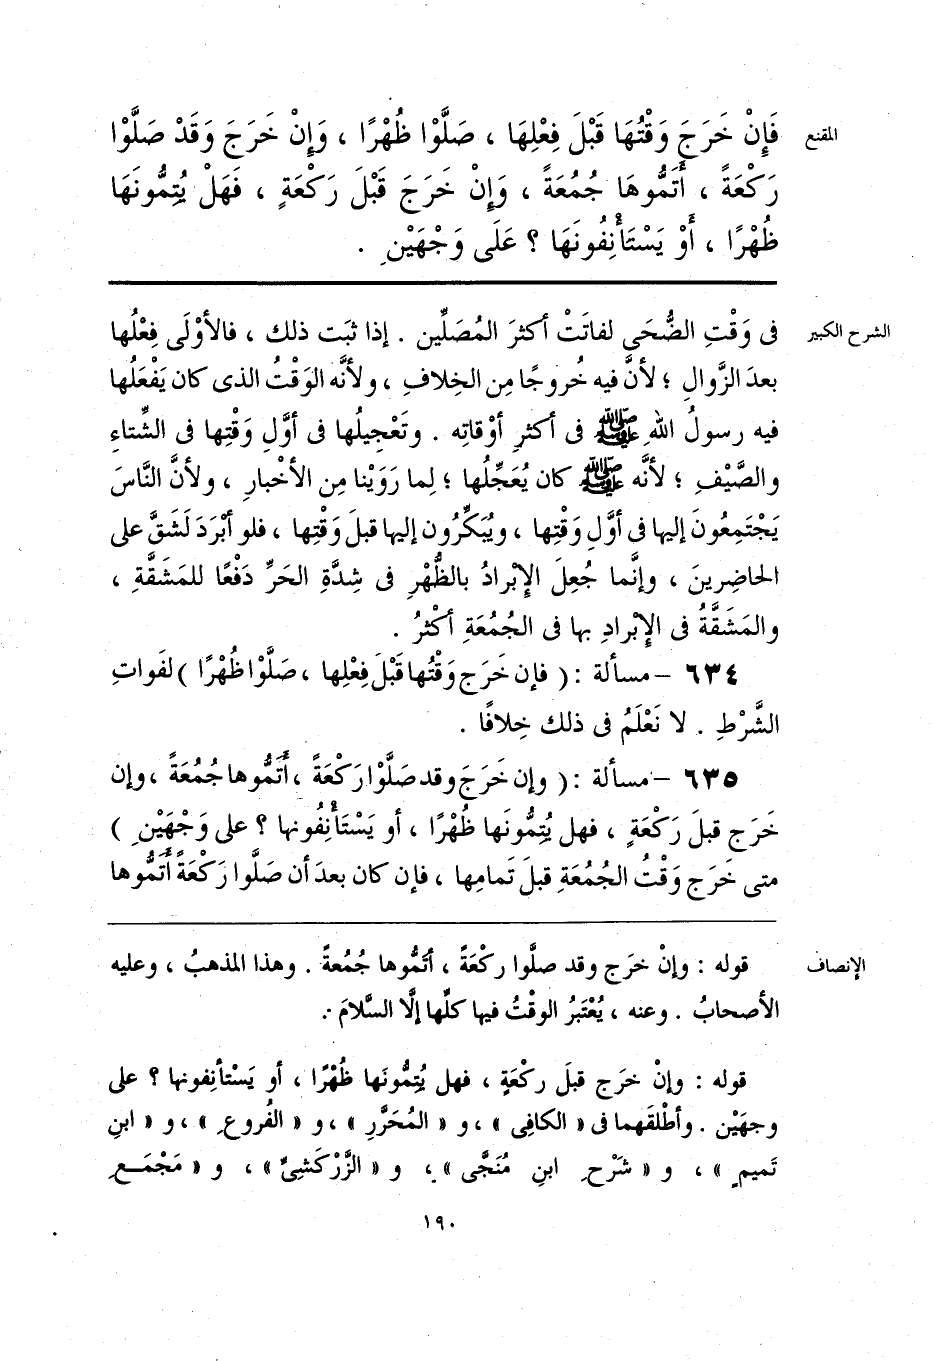 المقنع
فَإِنْ خَرَجَ وَقْتُهَا قَبْلَ فِعْلِهَا ، صَلَّوْا ظُهْرًا ، وَإِنْ خَرَجَ وَقَدْ صَلَّوْا
رَكْعَةً ، أَتَمُّوهَا جُمُعَةً ، وَإِنْ خَرَجَ قَبْلَ رَكْعَةٍ ، فَهَلْ يُتِمُّونَهَا
ظُهْرًا ، أَوْ يَسْتَأْنِفُونَهَا ؟ عَلَى وَجْهَيْنِ .
الشرح الكبير
فى وَقْتِ الضُّحَى لفاتَتْ أكثرَ المُصَلِّين . إذا ثبَت ذلك ، فالأوْلَى فِعْلُها
بعدَ الزَّوالِ ؛ لأنَّ فيه خُروجًا مِن الخِلافِ ، ولأنَّه الوَقْتُ الذى كان يَفْعَلُها
فيه رسولُ اللهِ ﷺ فى أكثرِ أوْقاتِه . وتَعْجِيلُها فى أوَّلِ وَقْتِها فى الشِّتاءِ
والصَّيْفِ ؛ لأنَّه ﷺ كان يُعَجِّلُها ؛ لِما رَوَيْنا مِن الأخْبارِ ، ولأنَّ النَّاسَ
يَجْتَمِعُونَ إليها فى أوَّلِ وَقْتِها ، ويُبَكِّرُون إليها قبلَ وَقْتِها ، فلو أبْرَدَ لَشَقَّ على
الحاضِرِينَ ، وإنَّما جُعِلَ الإِبْرادُ بالظُّهْرِ فى شِدَّةِ الحَرِّ دَفْعًا للمَشَقَّةِ ،
والمَشَقَّةُ فى الإِبْرادِ بها فى الجُمُعَةِ أكْثرُ .
٦٣٤ – مسألة : ( فإن خَرَج وَقْتُها قَبْلَ فِعْلِها ، صَلَّوْا ظُهْرًا ) لفَواتِ
الشَّرْطِ . لا نَعْلَمُ فى ذلك خِلافًا .
٦٣٥ – مسألة : ( وإن خَرَجَ وقد صَلَّوْا رَكْعَةً ، أَتَمُّوها جُمُعَةً ، وإن
خَرَج قبلَ رَكْعَةٍ ، فهل يُتِمُّونَها ظُهْرًا ، أو يَسْتَأْنِفُونها ؟ على وَجْهَيْنِ )
متى خَرَج وَقْتُ الجُمُعَةِ قبلَ تَمامِها ، فإن كان بعدَ أن صَلَّوا رَكْعَةً أَتَمُّوها
الإنصاف
قوله : وإنْ خرَج وقد صلَّوا ركْعَةً ، أتَمُّوها جُمُعةً . وهذا المذهبُ ، وعليه
الأصحابُ . وعنه ، يُعْتَبرُ الوقْتُ فيها كلِّها إلَّا السَّلامَ .
قوله : وإنْ خرَج قبلَ ركْعَةٍ ، فهل يُتِمُّونَها ظُهْرًا ، أو يَسْتأنِفونها ؟ على
وجهَيْن . وأطْلَقَهما فى « الكافِى » ، و « المُحَرَّرِ » ، و « الفُروعِ » ، و « ابنِ
تَميمٍ » ، و « شَرْحِ ابنِ مُنَجَّى » ، و « الزَّرْكَشِىِّ » ، و « مَجْمَعِ
١٩٠